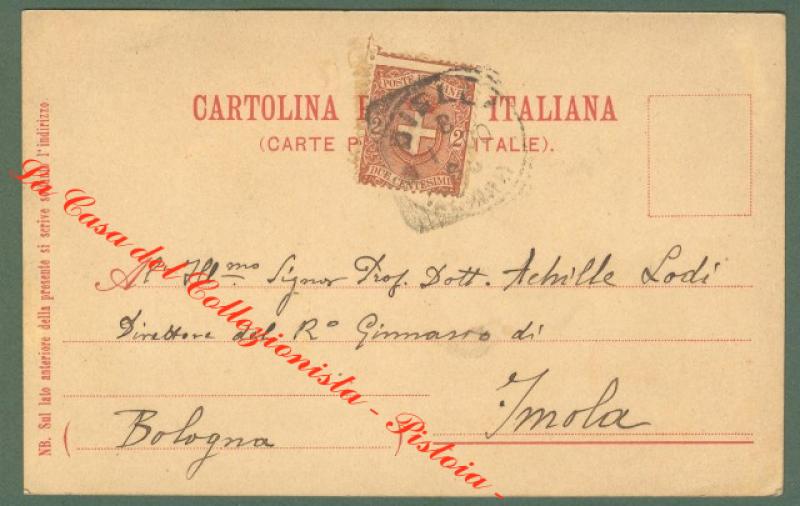 CARTOLINA ITALIANA
(CARTE P ITALIE).
POSTE
2 2
DUE CENTESIMI
BIELLA
NB. Sul lato anteriore della presente si scrive soltanto l'indirizzo.
Al Ill.mo Signor Prof. Dott. Achille Lodi
Direttore del R.o Ginnasio di
Imola
(Bologna)
La Casa del Collezionista - Pistoia -